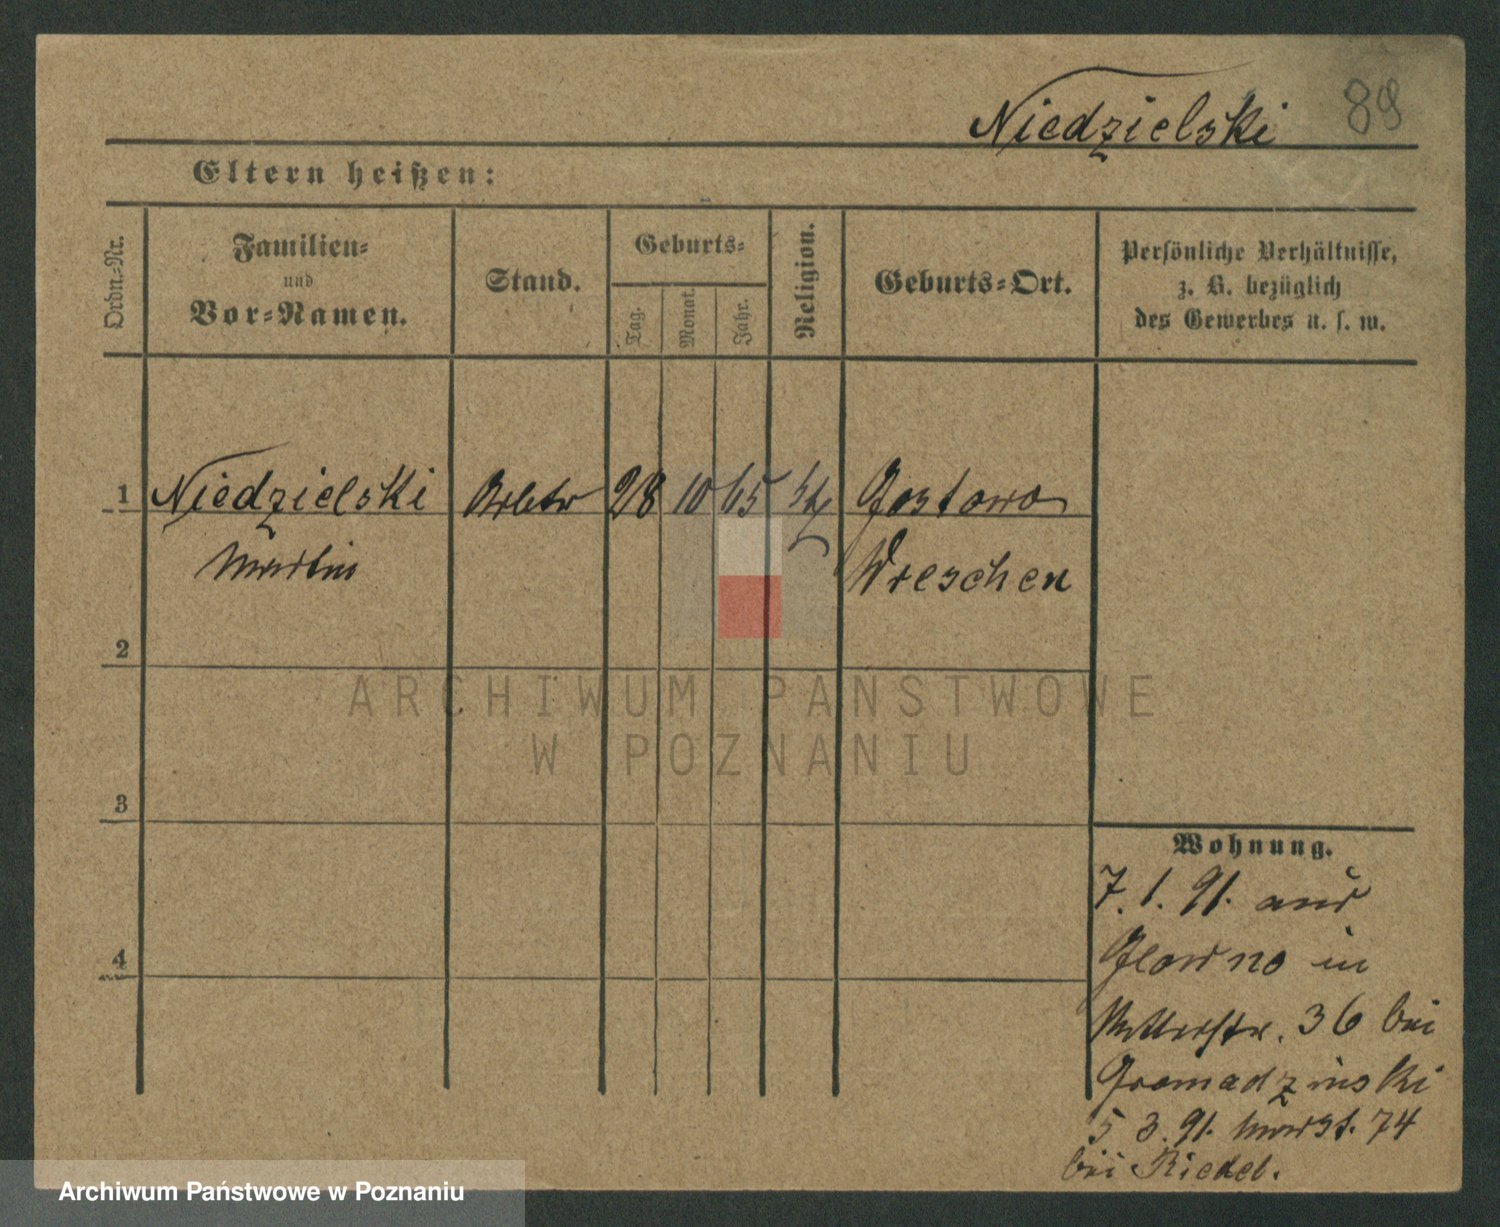 Niedzielski 89
Eltern heißen:
Ordn.-Nr.
Familien-
und
Vor-Namen.
Stand.
Geburts-
Tag.
Monat.
Jahr.
Religion.
Geburts-Ort.
Persönliche Verhältnisse,
z. B. bezüglich
des Gewerbes u. s. w.
1 Niedzielski 28 10 65 Gostowo
Martin Wreschen
2
3
4
Wohnung.
7.1.91. aus
Glowno in
36 bei
Gromadzinski
5 3.91. 74
bei Riedel.
ARCHIWUM PAŃSTWOWE
W POZNANIU
Archiwum Państwowe w Poznaniu